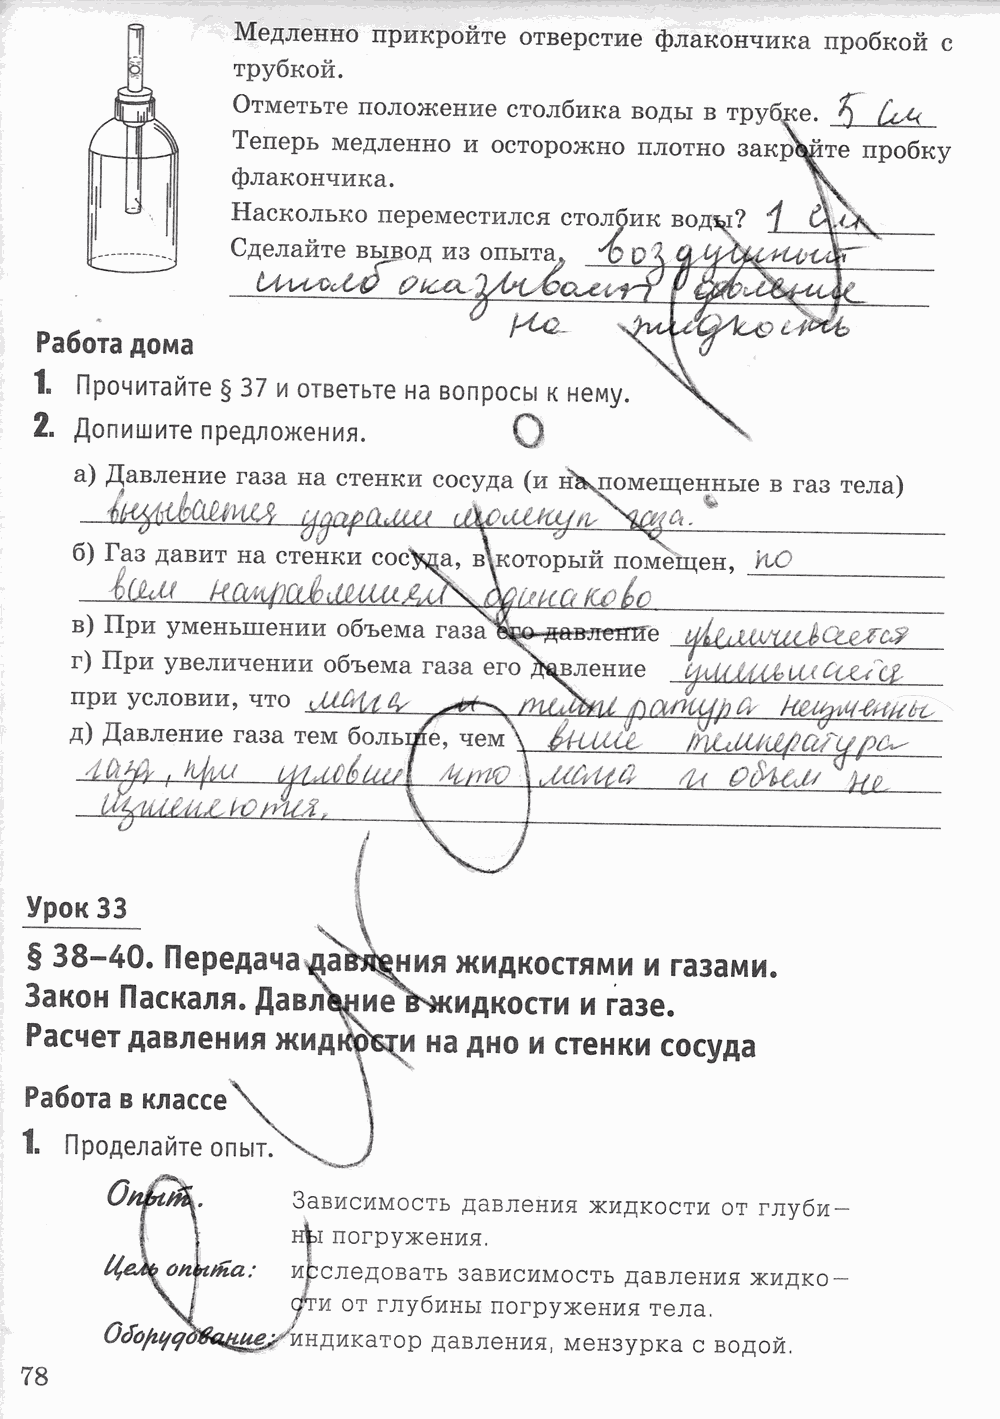 Медленно прикройте отверстие флакончика пробкой с
трубкой.
Отметьте положение столбика воды в трубке. 5 см
Теперь медленно и осторожно плотно закройте пробку
флакончика.
Насколько переместился столбик воды? 1 см
Сделайте вывод из опыта. воздушный
столб оказывает давление
на жидкость
Работа дома
1. Прочитайте § 37 и ответьте на вопросы к нему.
2. Допишите предложения.
а) Давление газа на стенки сосуда (и на помещенные в газ тела)
вызывается ударами молекул газа.
б) Газ давит на стенки сосуда, в который помещен, по
всем направлениям одинаково
в) При уменьшении объема газа его давление увеличивается
г) При увеличении объема газа его давление уменьшается
при условии, что масса и температура неизменны
д) Давление газа тем больше, чем выше температура
газа, при условии что масса и объем не
изменяются.
Урок 33
§ 38–40. Передача давления жидкостями и газами.
Закон Паскаля. Давление в жидкости и газе.
Расчет давления жидкости на дно и стенки сосуда
Работа в классе
1. Проделайте опыт.
Опыт. Зависимость давления жидкости от глуби–
ны погружения.
Цель опыта: исследовать зависимость давления жидко–
сти от глубины погружения тела.
Оборудование: индикатор давления, мензурка с водой.
78